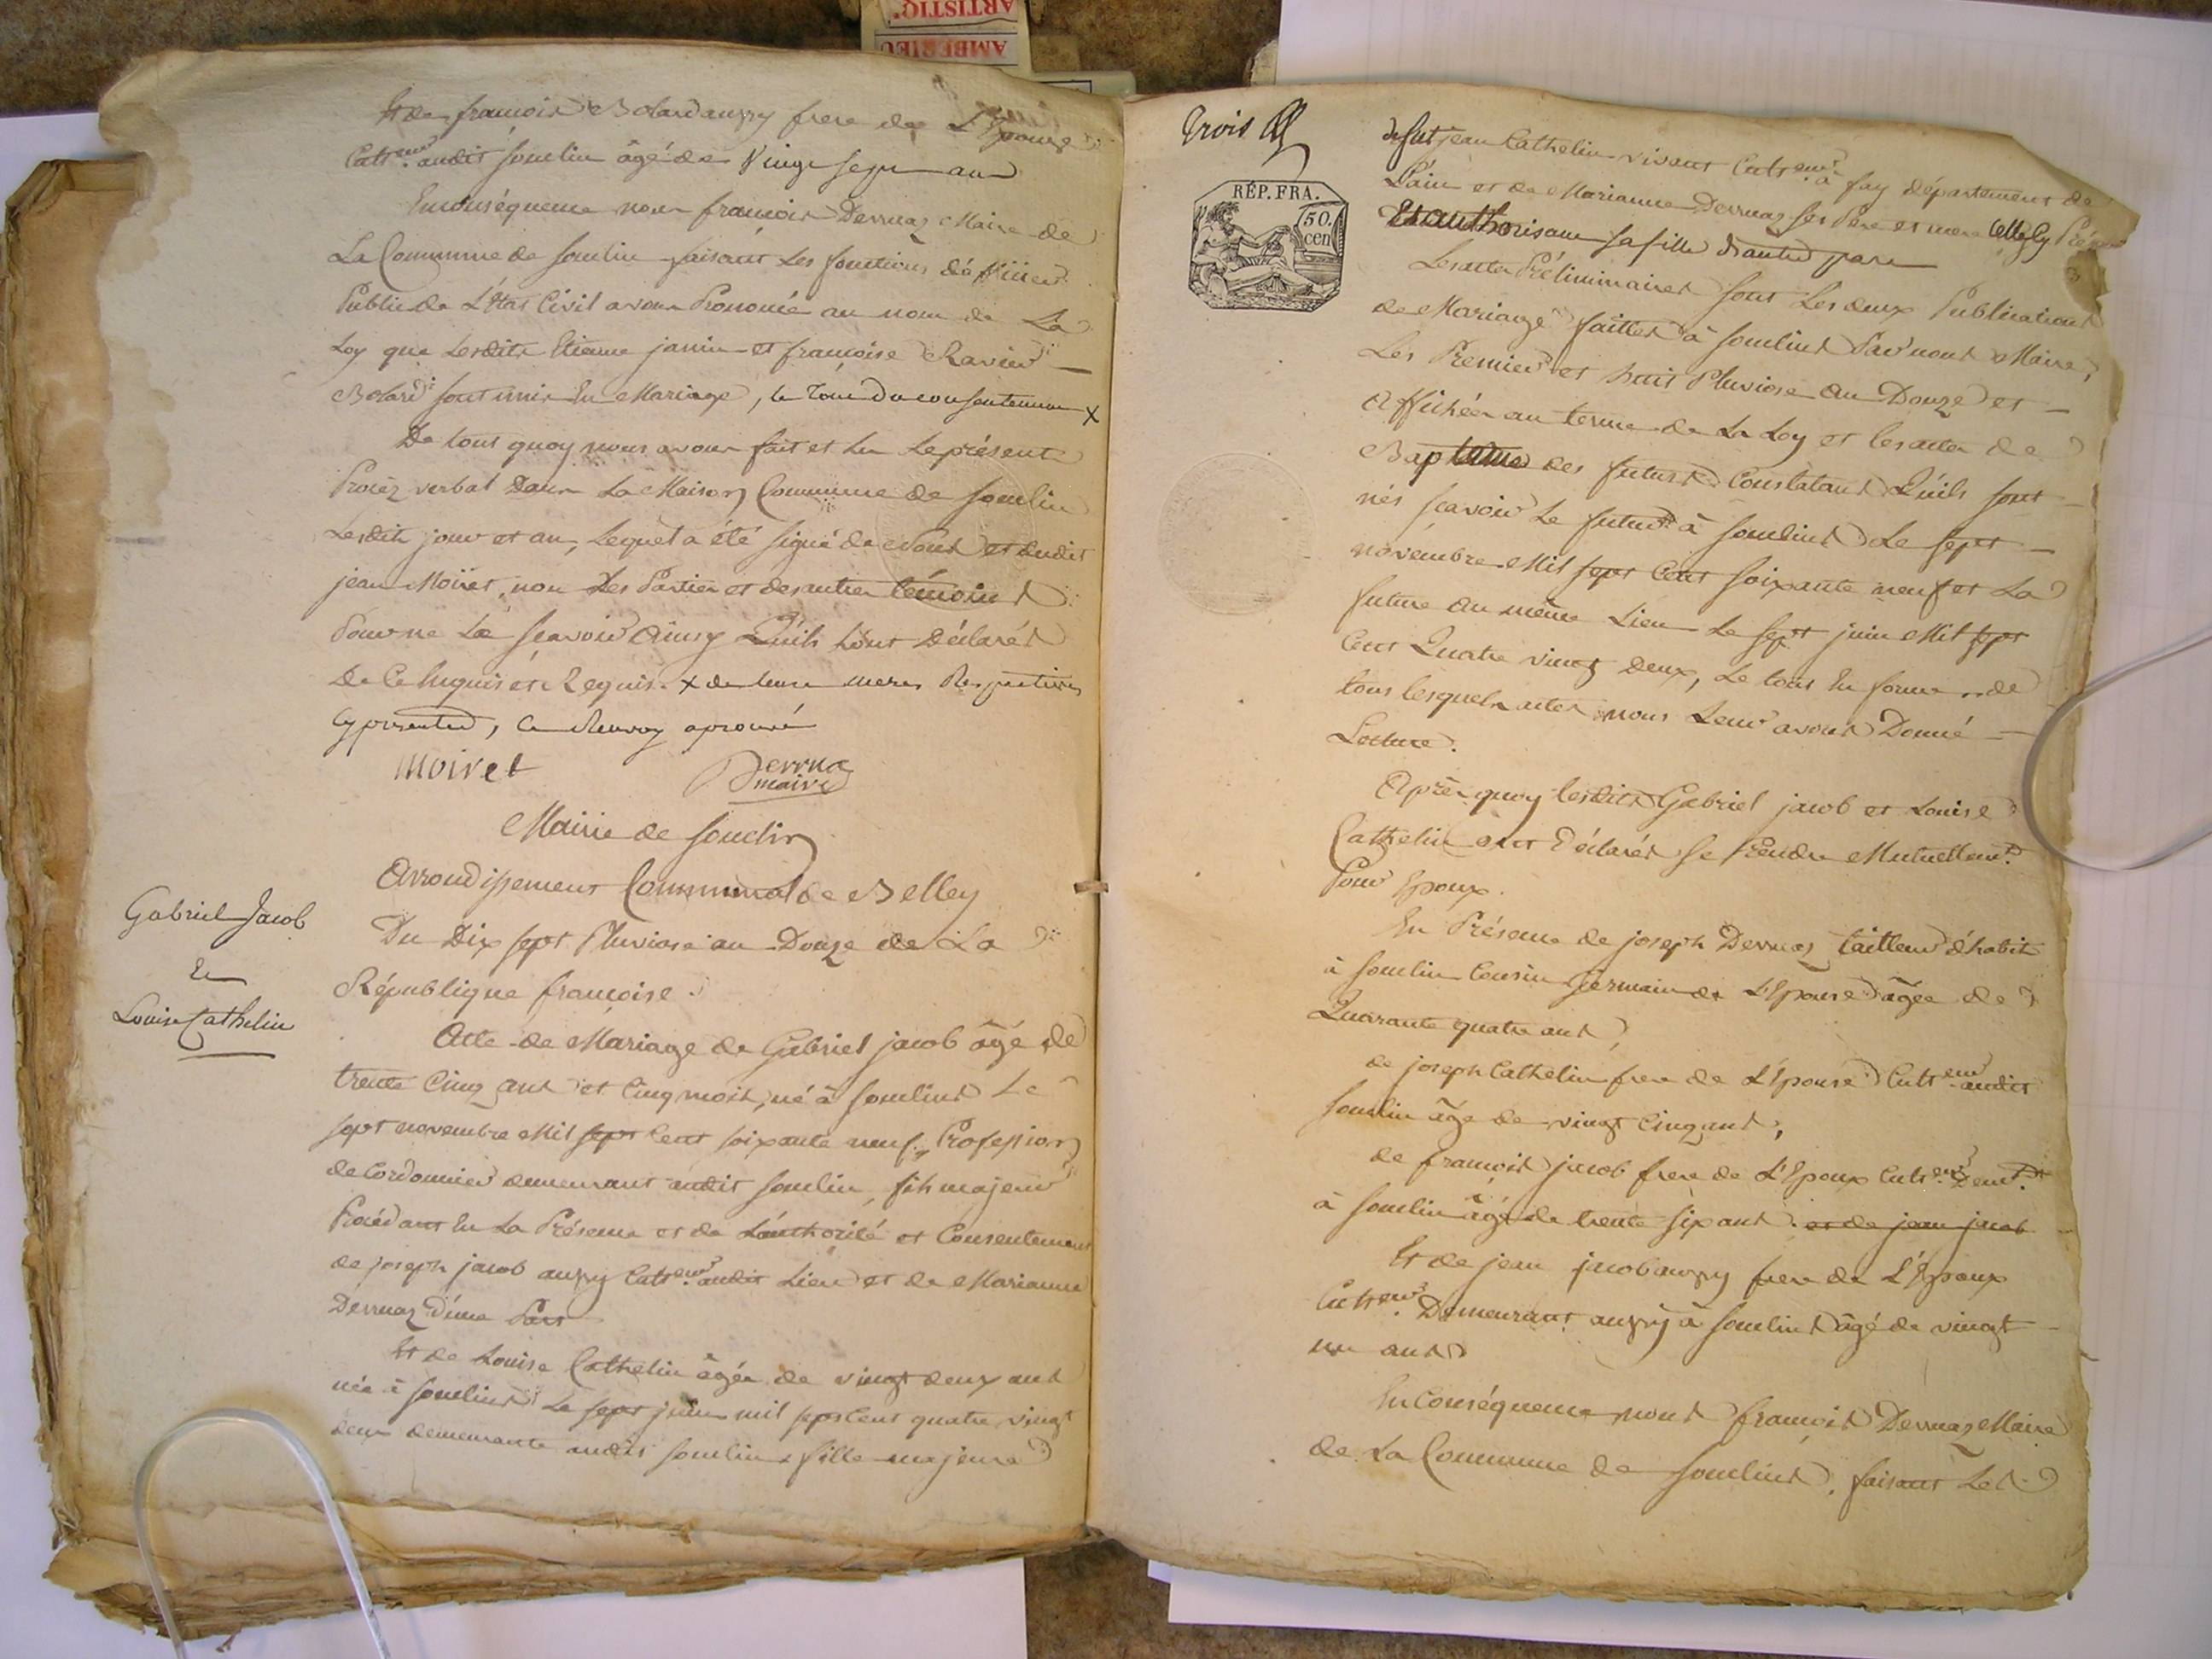 ARTISTIQ.
AMBERIEU
Et de françois Bolard aussy frere de L'Epouze
Cultr. audit Souclin âgé de Vingt sept ans
En conséquence nous françois Derruaz Maire de
La Commune de Souclin faisant Les fonctions d'officier
Public de L'Etat Civil avons Prononcé au nom de La
Loy que Lesdits Etienne janin et françoise Ravier
Bolard sont unis En Mariage, le tout du consentement x
De tout quoy nous avons fait et Lu Le présent
Procéz verbal Dans La Maison Commune de Souclin
Lesdits jour et an, Lequel a été signé de Nous et dudit
jean Moiret, non Les Parties et des autres témoins
Pour ne Le sçavoir Ainsy Quils L'ont Déclarés
De Ce Enquis et Requis. x de leurs meres Respectives
Cy presentes, Ce Renvoy aprouvé
Moiret Derruaz
maire
Mairie de Souclin
Arrondissement Communal de Belley
Gabriel Jacob
Et
Louise Cathelin
Du Dix sept Pluviose an Douze de La
République françoise.
Acte de Mariage de Gabriel jacob âgé de
trente Cinq ans et Cinq mois, né à Souclins Le
sept novembre Mil sept Cent soixante neuf, Profession
de Cordonnier demeurant audit Souclin, fils majeur
Procédant En La Présence et de L'authorité et Consentement
de joseph jacob aussy Cultr. audit Lieu et de Marianne
Derruaz D'une Part
Et de Louise Cathelin âgée de vingt deux ans
née à Souclins Le sept juin mil sept Cent quatre vingt
deux demeurante audit Souclin, fille majeure
Trois
RÉP. FRA.
50.
cen
de fut jean Cathelin vivant Cultr. à fay département de
L'ain et de Marianne Derruaz ses Pere et mere Celle Cy Présente
Et authorisant sa fille d'autre part
Les actes Préliminaires sont Les deux Publications
de Mariage faittes à Souclins Par nous Maire,
Les Premier et huit Pluviose an Douze et
Affichées au terme de La Loy et les actes de
Baptême des futurs Constatant Quils sont
nés sçavoir Le futur à Souclins Le sept
novembre Mil sept Cent soixante neuf et La
future au même Lieu Le sept juin Mil sept
Cent Quatre vingt Deux, Le tout En forme, de
tous lesquels actes nous Leur avons Donné
Lecture.
Après quoy lesdits Gabriel jacob et Louise
Cathelin ont Déclarés se Prendre Mutuellemt.
Pour Epoux.
En Présence de joseph Derruaz tailleur d'habits
à Souclin Cousin Germain de L'Epouse âgée de
Quarante quatre ans,
de joseph Cathelin frere de L'Epouse Cultr. audit
Souclin âgé de vingt Cinq ans,
de françois jacob frere de L'Epoux Cultr. Demt.
à Souclin âgé de trente six ans. et de jean jacob
Et de jean jacob aussy frere de L'Epoux
Cultr. Demeurant aussy à Souclins âgé de vingt
un ans
En Conséquence nous françois Derruaz Maire
de La Commune de Souclins, faisant Les